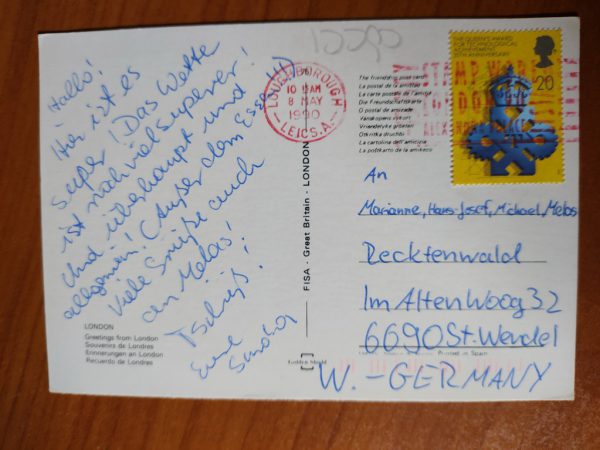 Hallo!
Hier ist es
super! Das Wetter
ist noch viel superer!
Und überhaupt und
allgemein! (Außer dem Essen!!)
Viele Grüße auch
an Melas!
Tschüß!
Eure
LONDON
Greetings from London
Souvenirs de Londres
Erinnerungen an London
Recuerdo de Londres
FISA - Great Britain - LONDON
Golden Shield
LOUGHBOROUGH
10 AM
8 MAY
1990
LEICS.A.
THE QUEEN'S AWARD
FOR TECHNOLOGICAL
ACHIEVEMENT
25TH ANNIVERSARY
20
STAMP WORLD
LONDON 90
ALEXANDRA PALACE
The friendship post card
La postal de la amistad
La carte postale de l'amitié
Die Freundschaftskarte
O postal da amizade
Vänskapens vykort
Vriendelijke groeten
La cartolina dell'amicizia
An
Marianne, Hans-Josef, Michael, Melas
Recktenwald
Im Alten Woog 32
6690 St. Wendel
Printed in Spain
W.-GERMANY